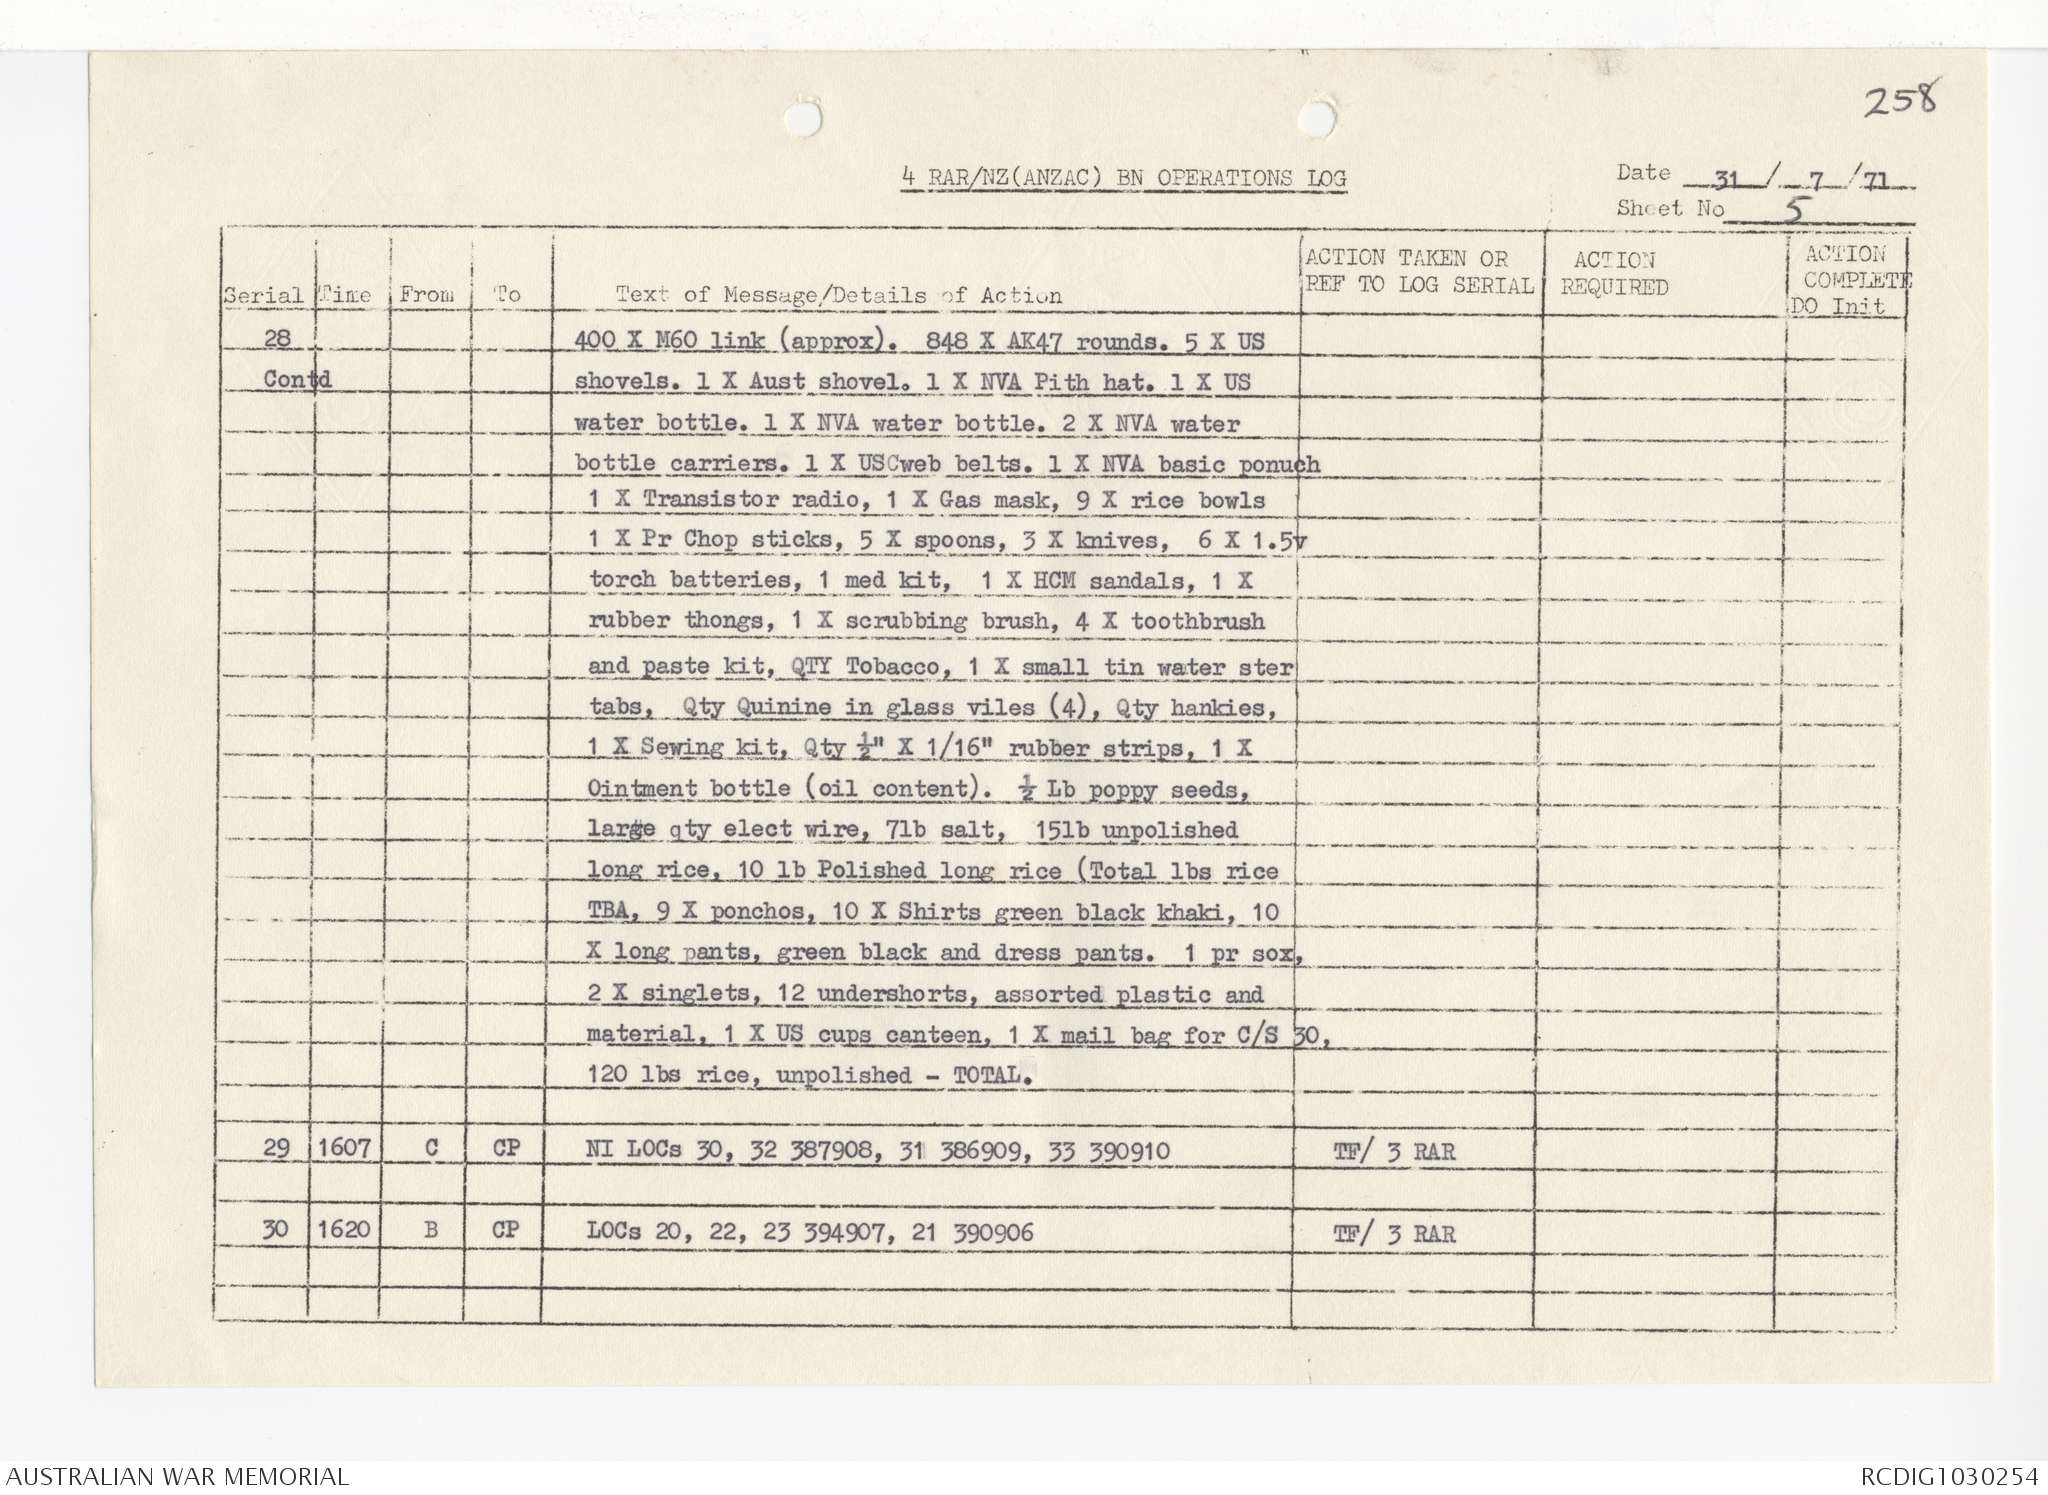 258
4 RAR/NZ(ANZAC) BN OPERATIONS LOG
Date 31 / 7 /71
Sheet No 5
Serial Time From To Text of Message/Details of Action ACTION TAKEN OR REF TO LOG SERIAL ACTION REQUIRED ACTION COMPLETE DO Init
28 400 X M60 link (approx). 848 X AK47 rounds. 5 X US
Contd shovels. 1 X Aust shovel. 1 X NVA Pith hat. 1 X US
water bottle. 1 X NVA water bottle. 2 X NVA water
bottle carriers. 1 X USCweb belts. 1 X NVA basic ponuch
1 X Transistor radio, 1 X Gas mask, 9 X rice bowls
1 X Pr Chop sticks, 5 X spoons, 3 X knives, 6 X 1.5v
torch batteries, 1 med kit, 1 X HCM sandals, 1 X
rubber thongs, 1 X scrubbing brush, 4 X toothbrush
and paste kit, QTY Tobacco, 1 X small tin water ster
tabs, Qty Quinine in glass viles (4), Qty hankies,
1 X Sewing kit, Qty ½" X 1/16" rubber strips, 1 X
Ointment bottle (oil content). ½ Lb poppy seeds,
large qty elect wire, 7lb salt, 15lb unpolished
long rice, 10 lb Polished long rice (Total lbs rice
TBA, 9 X ponchos, 10 X Shirts green black khaki, 10
X long pants, green black and dress pants. 1 pr sox,
2 X singlets, 12 undershorts, assorted plastic and
material, 1 X US cups canteen, 1 X mail bag for C/S 30,
120 lbs rice, unpolished - TOTAL.
29 1607 C CP NI LOCs 30, 32 387908, 31 386909, 33 390910 TF/ 3 RAR
30 1620 B CP LOCs 20, 22, 23 394907, 21 390906 TF/ 3 RAR
AUSTRALIAN WAR MEMORIAL
RCDIG1030254